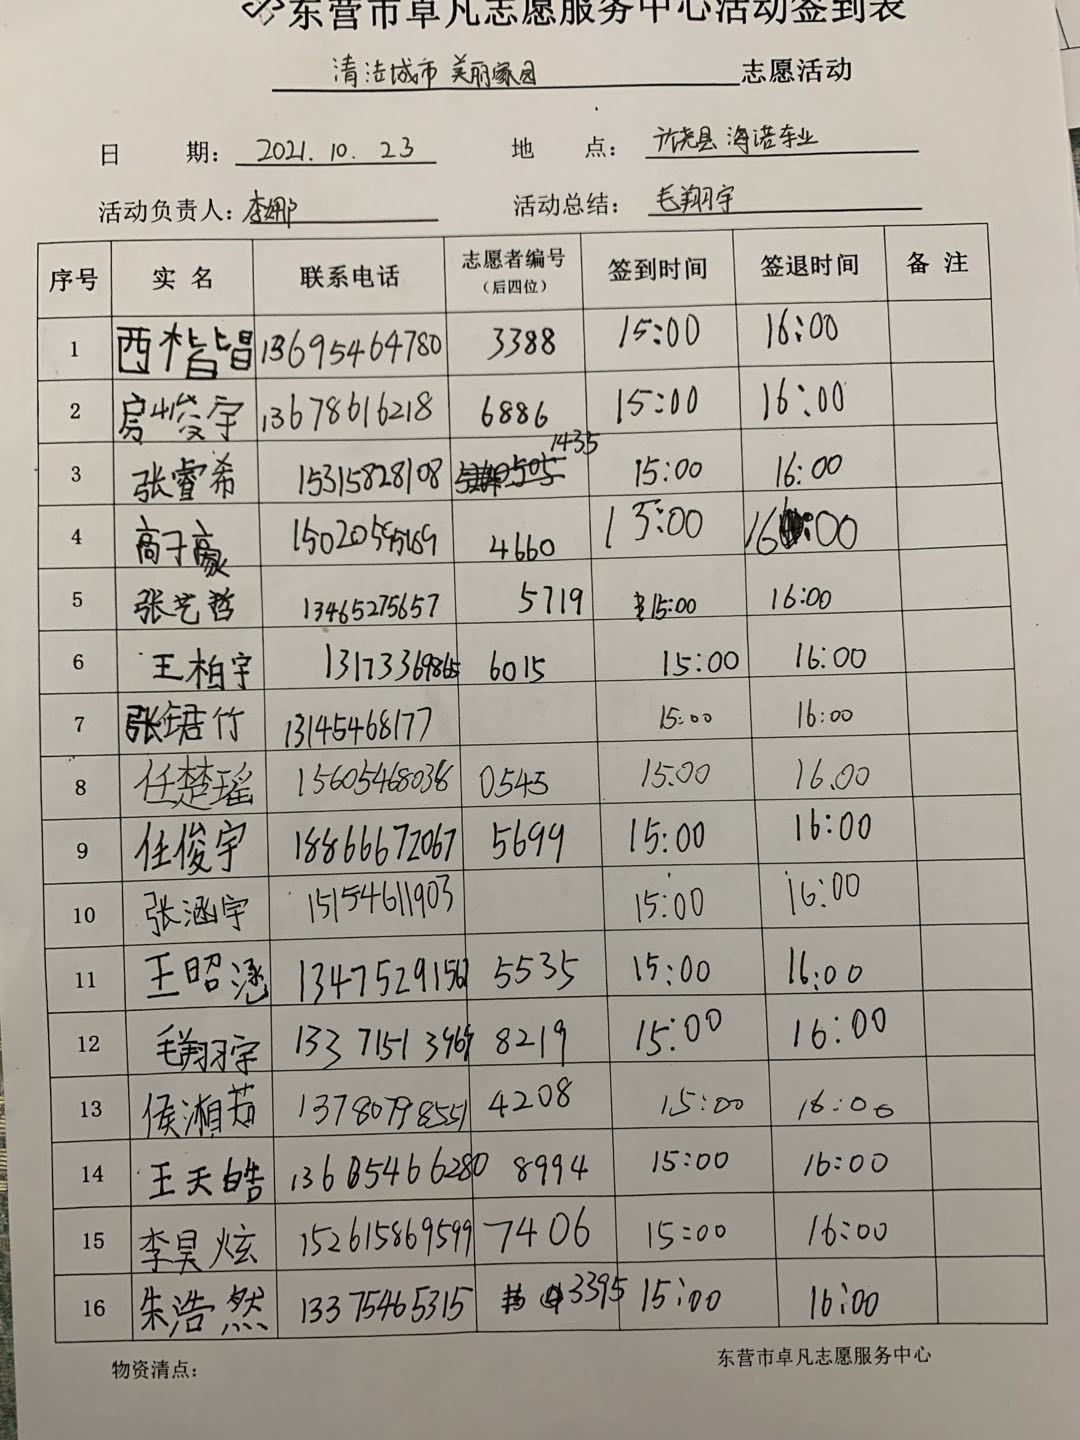 东营市卓凡志愿服务中心活动签到表
清洁城市 美丽家园 志愿活动
日 期: 2021.10.23 地 点: 海诺车业
活动负责人: 李娜 活动总结: 毛翔宇
序号 实名 联系电话 志愿者编号 (后四位) 签到时间 签退时间 备注
1 西楷唱 13695464780 3388 15:00 16:00
2 房峻宇 13678616218 6886 15:00 16:00
3 张睿希 15315828108 1435 15:00 16:00
4 高子豪 4660 15:00 16:00
5 张艺哲 13465275657 5719 15:00 16:00
6 王柏宇 13173369865 6015 15:00 16:00
7 张珺竹 13145468177 15:00 16:00
8 任楚瑶 15605468038 0545 15:00 16.00
9 任俊宇 18866672067 5699 15:00 16:00
10 张涵宇 15154611903 15:00 16:00
11 王昭涵 5535 15:00 16:00
12 毛翔宇 8219 15:00 16:00
13 侯湘茹 13780798551 4208 15:00 16:00
14 王天皓 13685466280 8994 15:00 16:00
15 李昊炫 152615869599 7406 15:00 16:00
16 朱浩然 13375465315 3395 15:00 16:00
物资清点: 东营市卓凡志愿服务中心